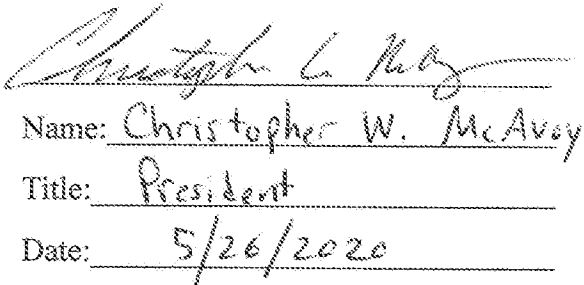 Christopher
Name: Christopher W. McAvoy
Title: President
Date: 5/26/2020